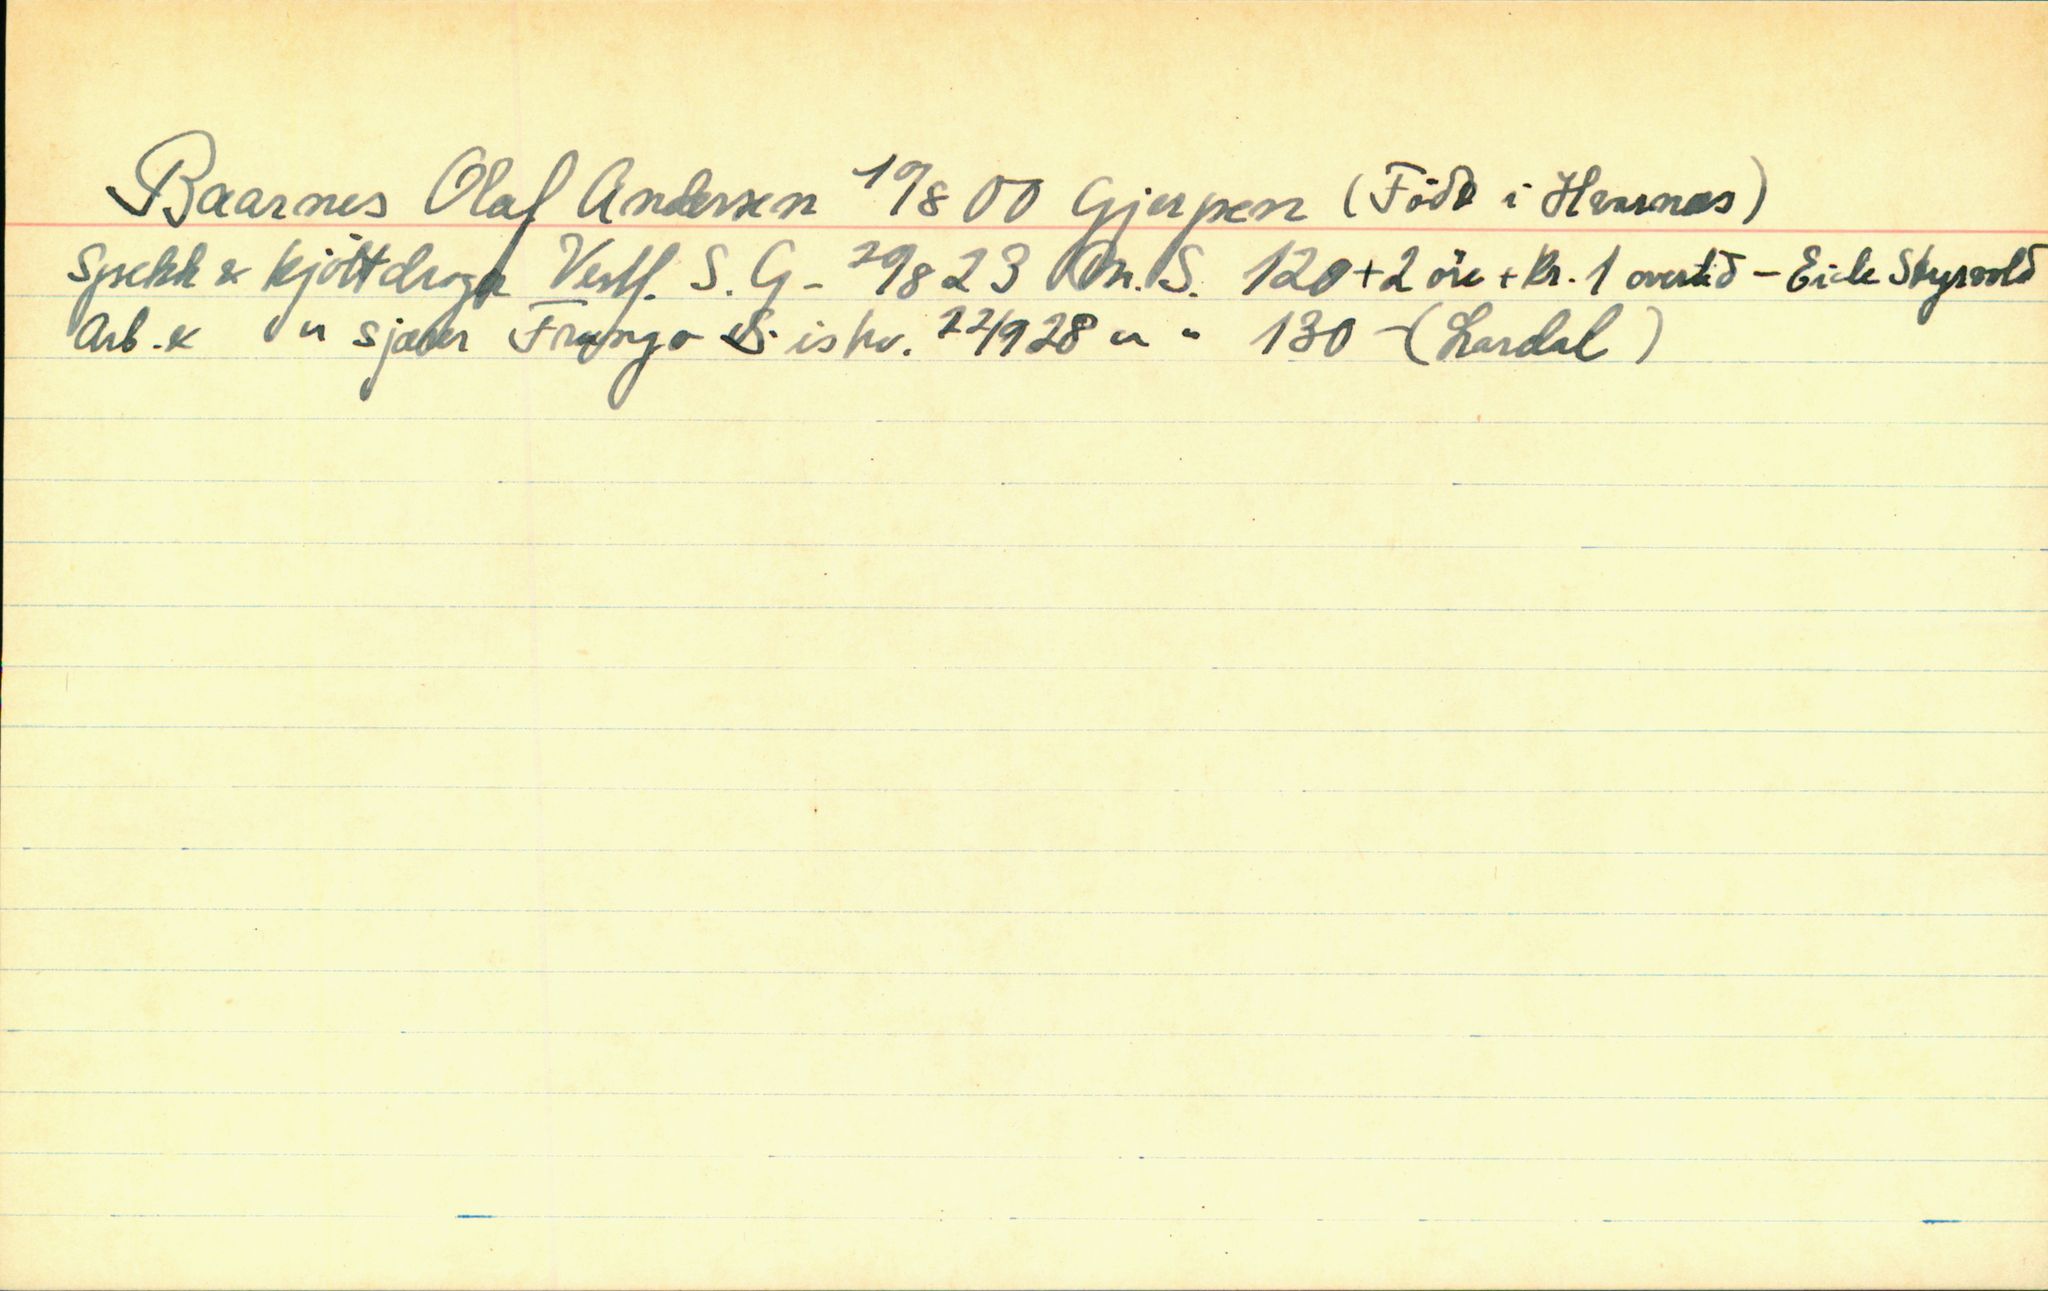 Baarnes Olaf Andersen 19/8 00 Gjerpen (Född i Hvarnes)
Spekk & kjöttdrager Vestf. S.G- 29/8 23 Ön. S. 120+2 öre + Kr. 1 overtid - Eide Styrvold
Arb. & " sjauer Frango S. ishv. 22/9 28 " " 130 - (Lardal)